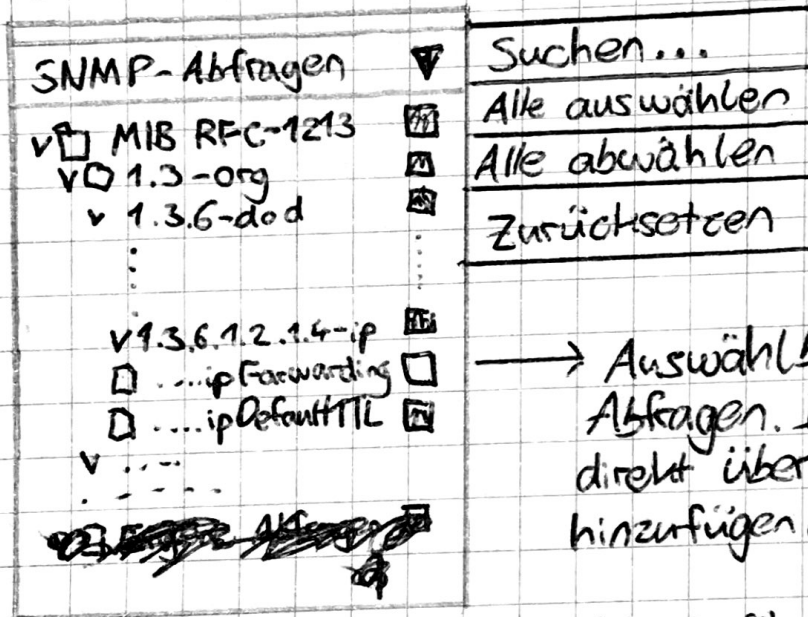 SNMP-Abfragen
Suchen...
Alle auswählen
Alle abwählen
Zurücksetzen
v MIB RFC-1213
v 1.3-org
v 1.3.6-dod
v 1.3.6.1.2.1.4-ip
....ipForwarding
....ipDefaultTTL
v ....
Abfragen.
direkt über
hinzufügen